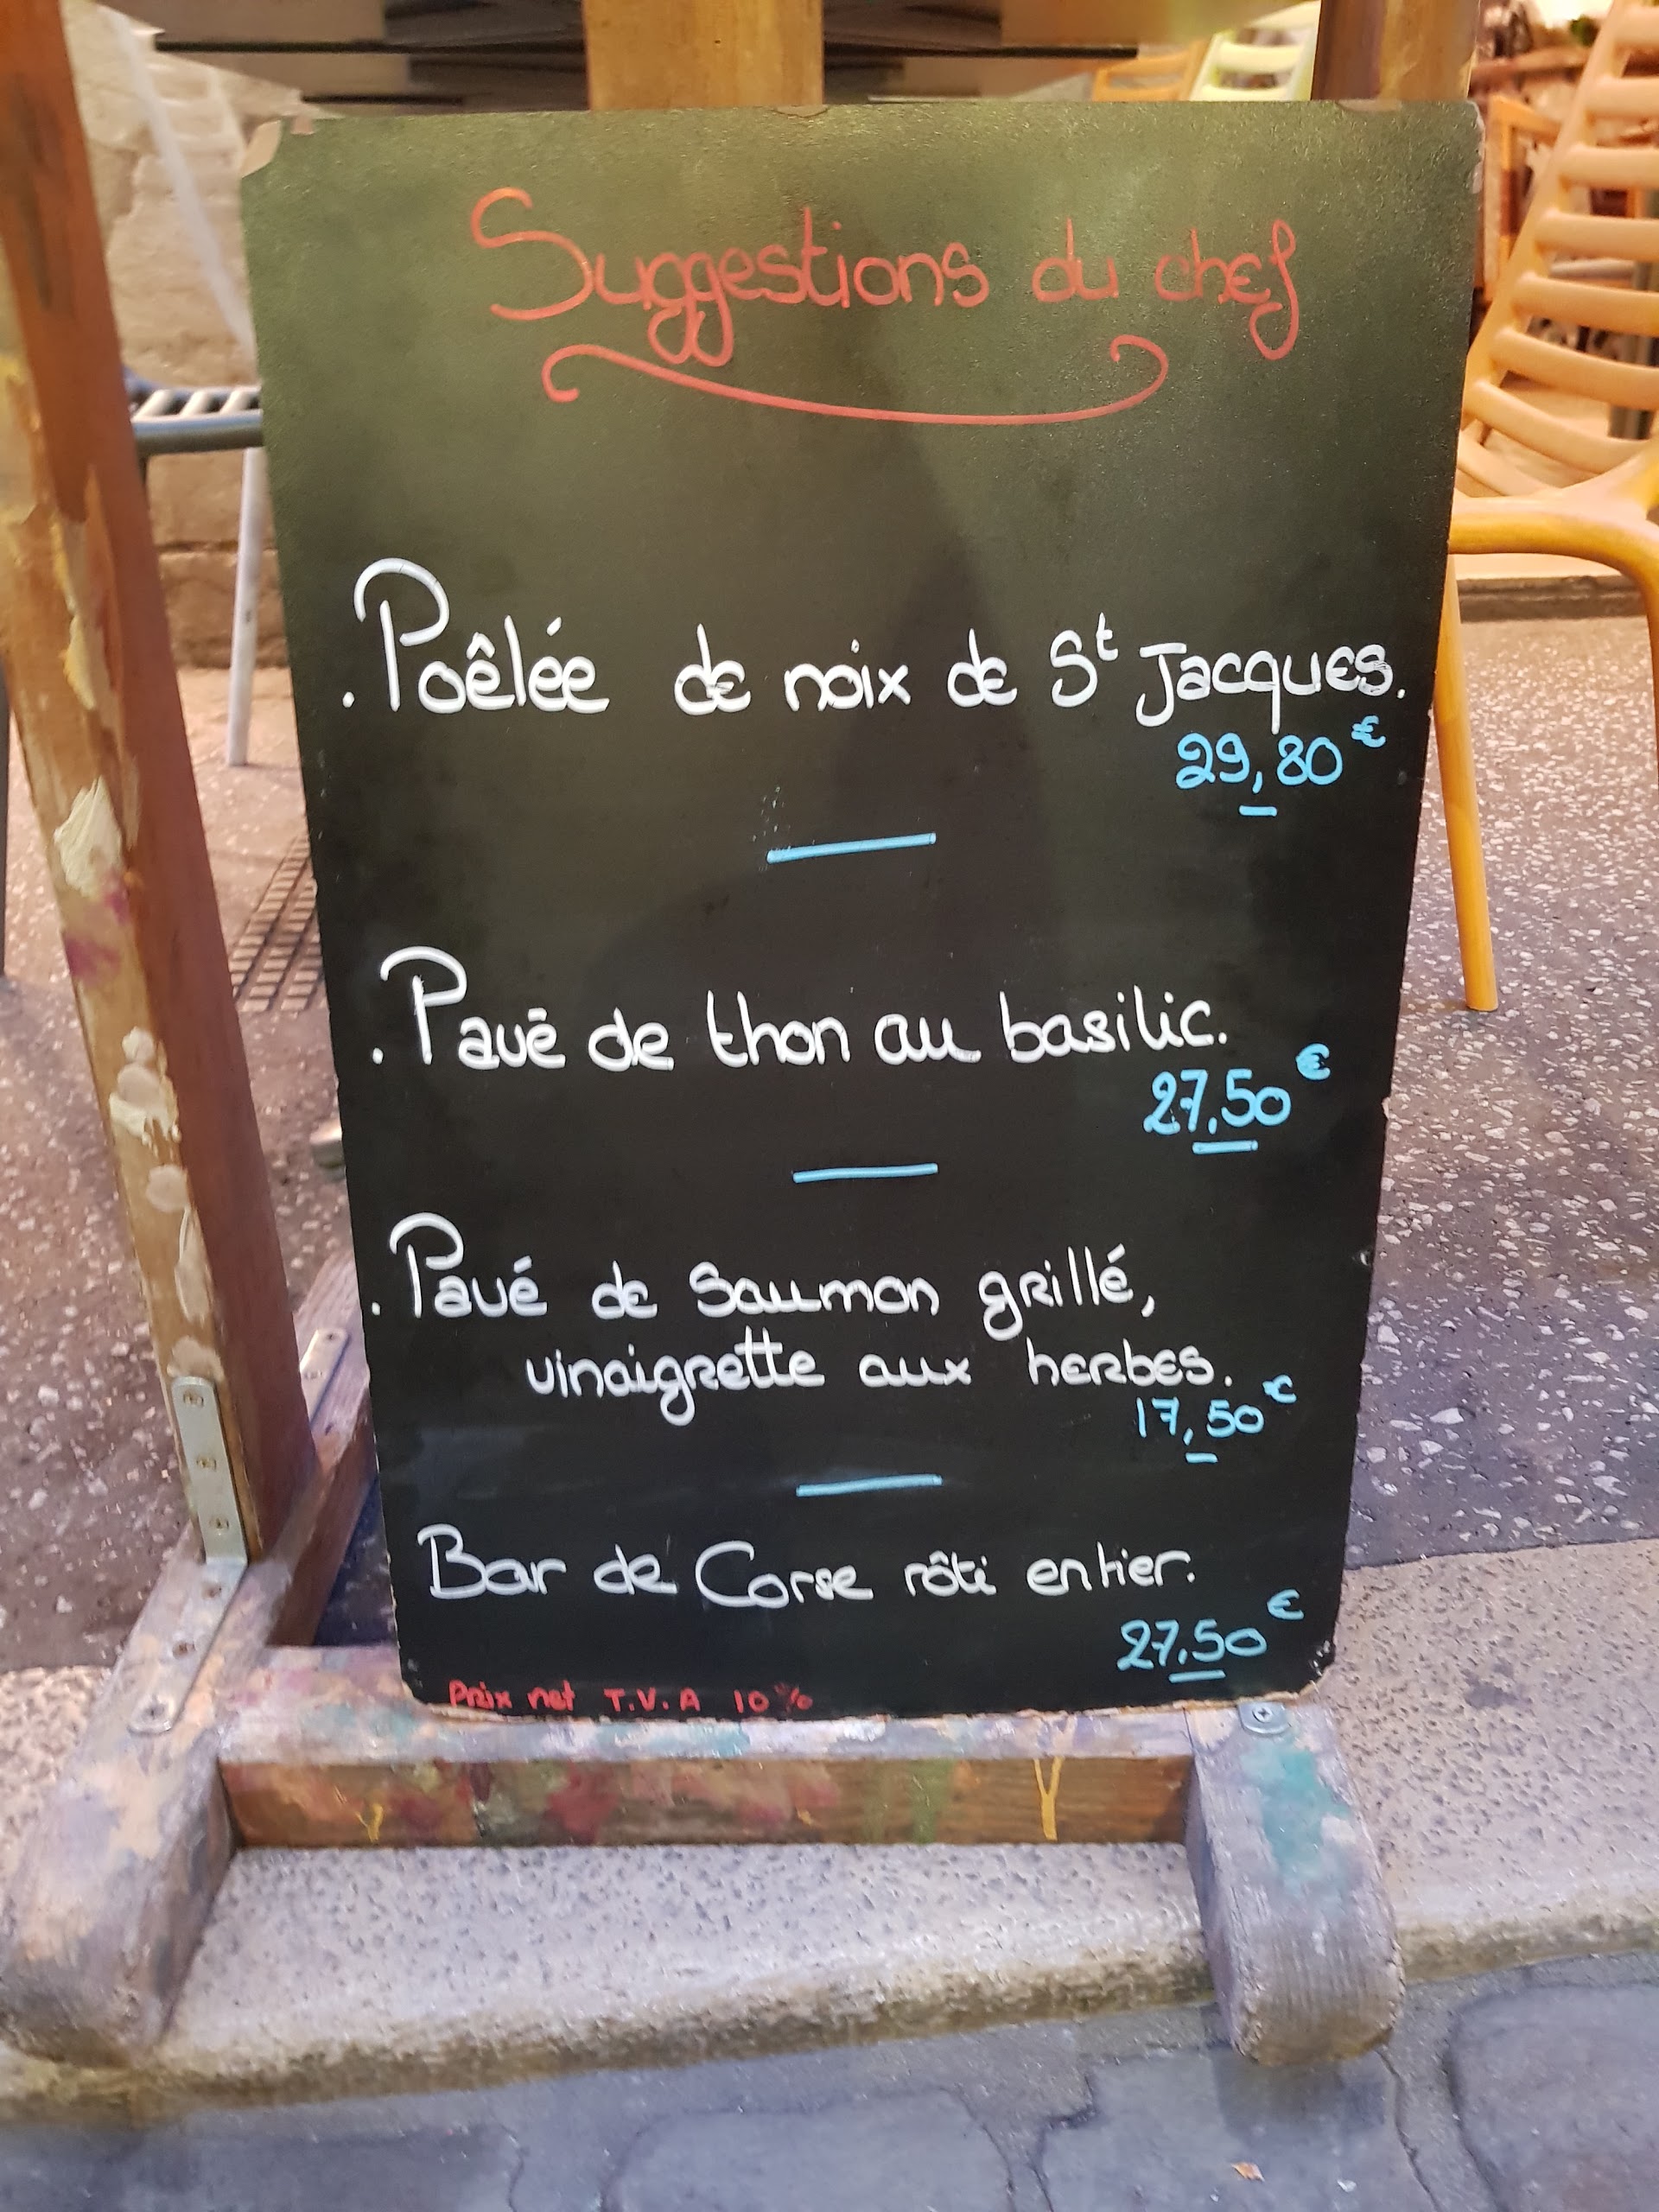 Suggestions du chef
. Poêlée de noix de St Jacques.
29,80€
. Pavé de thon au basilic.
27,50€
. Pavé de Saumon grillé,
vinaigrette aux herbes.
17,50€
Bar de Corse rôti entier.
27,50€
Prix net T.V.A 10%